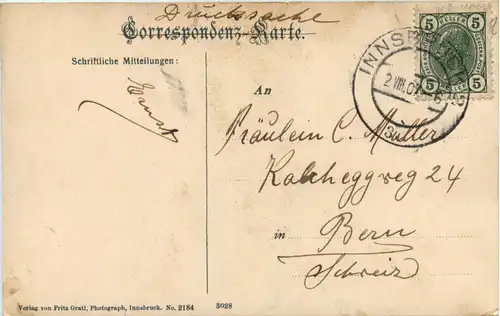 Drucksache
Correspondenz-Karte.
Schriftliche Mitteilungen:
Ernst
An
Fräulein C. Müller
Kalcheggweg 24
in Bern
Schweiz
INNSBRUCK
2 VIII 0
5 HELLER 5
5 5
Verlag von Fritz Gratl, Photograph, Innsbruck. No. 2184
3028